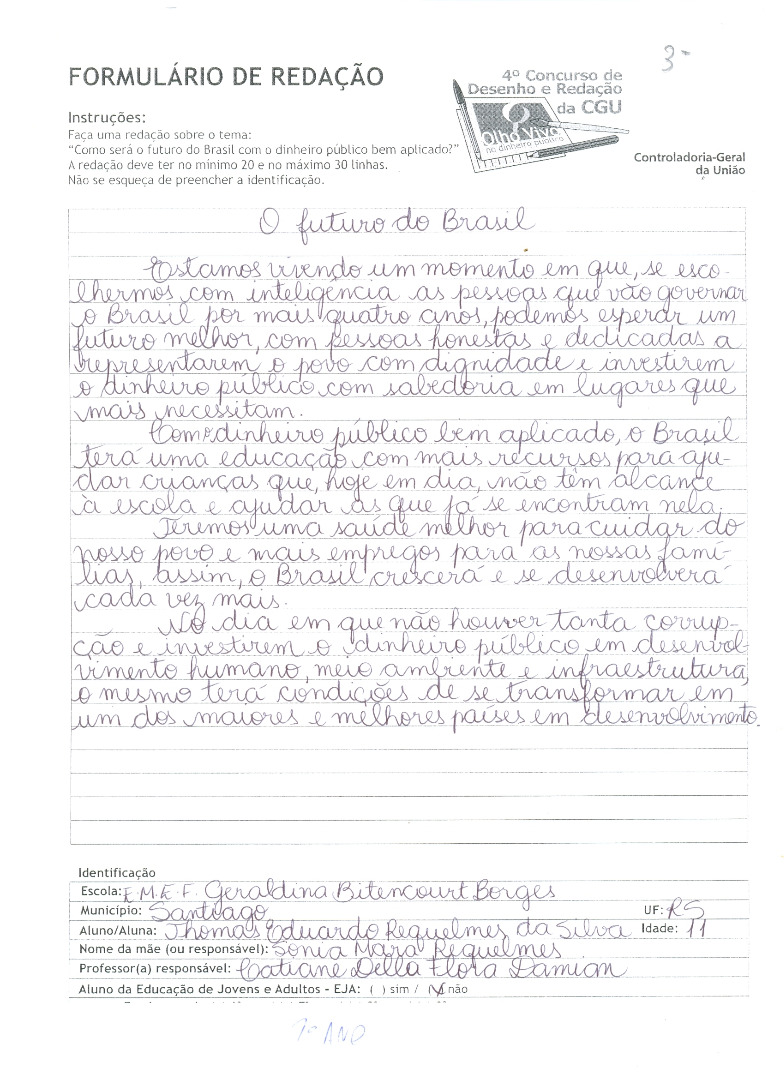 3-
FORMULÁRIO DE REDAÇÃO
4º Concurso de
Desenho e Redação
da CGU
Olho Vivo
no dinheiro público
Instruções:
Faça uma redação sobre o tema:
"Como será o futuro do Brasil com o dinheiro público bem aplicado?"
A redação deve ter no mínimo 20 e no máximo 30 linhas.
Não se esqueça de preencher a identificação.
Controladoria-Geral
da União
O futuro do Brasil
Estamos vivendo um momento em que, se esco-
lhermos com inteligência as pessoas que vão governar
o Brasil por mais quatro anos, podemos esperar um
futuro melhor, com pessoas honestas e dedicadas a
representarem o povo com dignidade e investirem
o dinheiro público com sabedoria em lugares que
mais necessitam.
Com o dinheiro público bem aplicado, o Brasil
terá uma educação com mais recursos para aju-
dar crianças que, hoje em dia, não têm alcance
à escola e ajudar as que já se encontram nela.
Teremos uma saúde melhor para cuidar do
nosso povo e mais empregos para as nossas famí-
lias, assim, o Brasil crescerá e se desenvolverá
cada vez mais.
No dia em que não houver tanta corrup-
ção e investirem o dinheiro público em desenvol-
vimento humano, meio ambiente e infraestrutura,
o mesmo terá condições de se transformar em
um dos maiores e melhores países em desenvolvimento.
Identificação
Escola: E.M.E.F. Geraldina Bitencourt Borges
Município: Santiago UF: RS
Aluno/Aluna: Thomas Eduardo Requelmes da Silva Idade: 11
Nome da mãe (ou responsável): Sônia Mara Requelmes
Professor(a) responsável: Catiane Della Flora Damian
Aluno da Educação de Jovens e Adultos - EJA: ( ) sim / (X) não
7º ANO